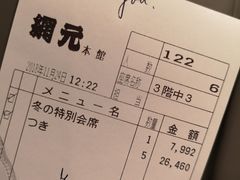 you.
網元 本館
122
人数 6
座席名称 3階中3
担当
2013年11月24日 12:22
メニュー名 数量 金額
冬の特別会席 1 7,992
つき 5 26,460